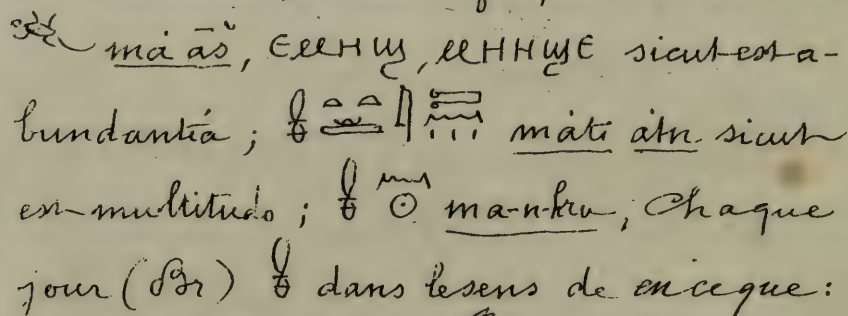 má āš, ⲉⲙⲏϣ, ⲙⲏⲏϣⲉ sicut-est-a-
bundantiá ; máti átn. sicut
est-multitudo ; 𓈖 𓇳 ma-n-hru, Chaque
jour (Br) dans le sens de en ce que: